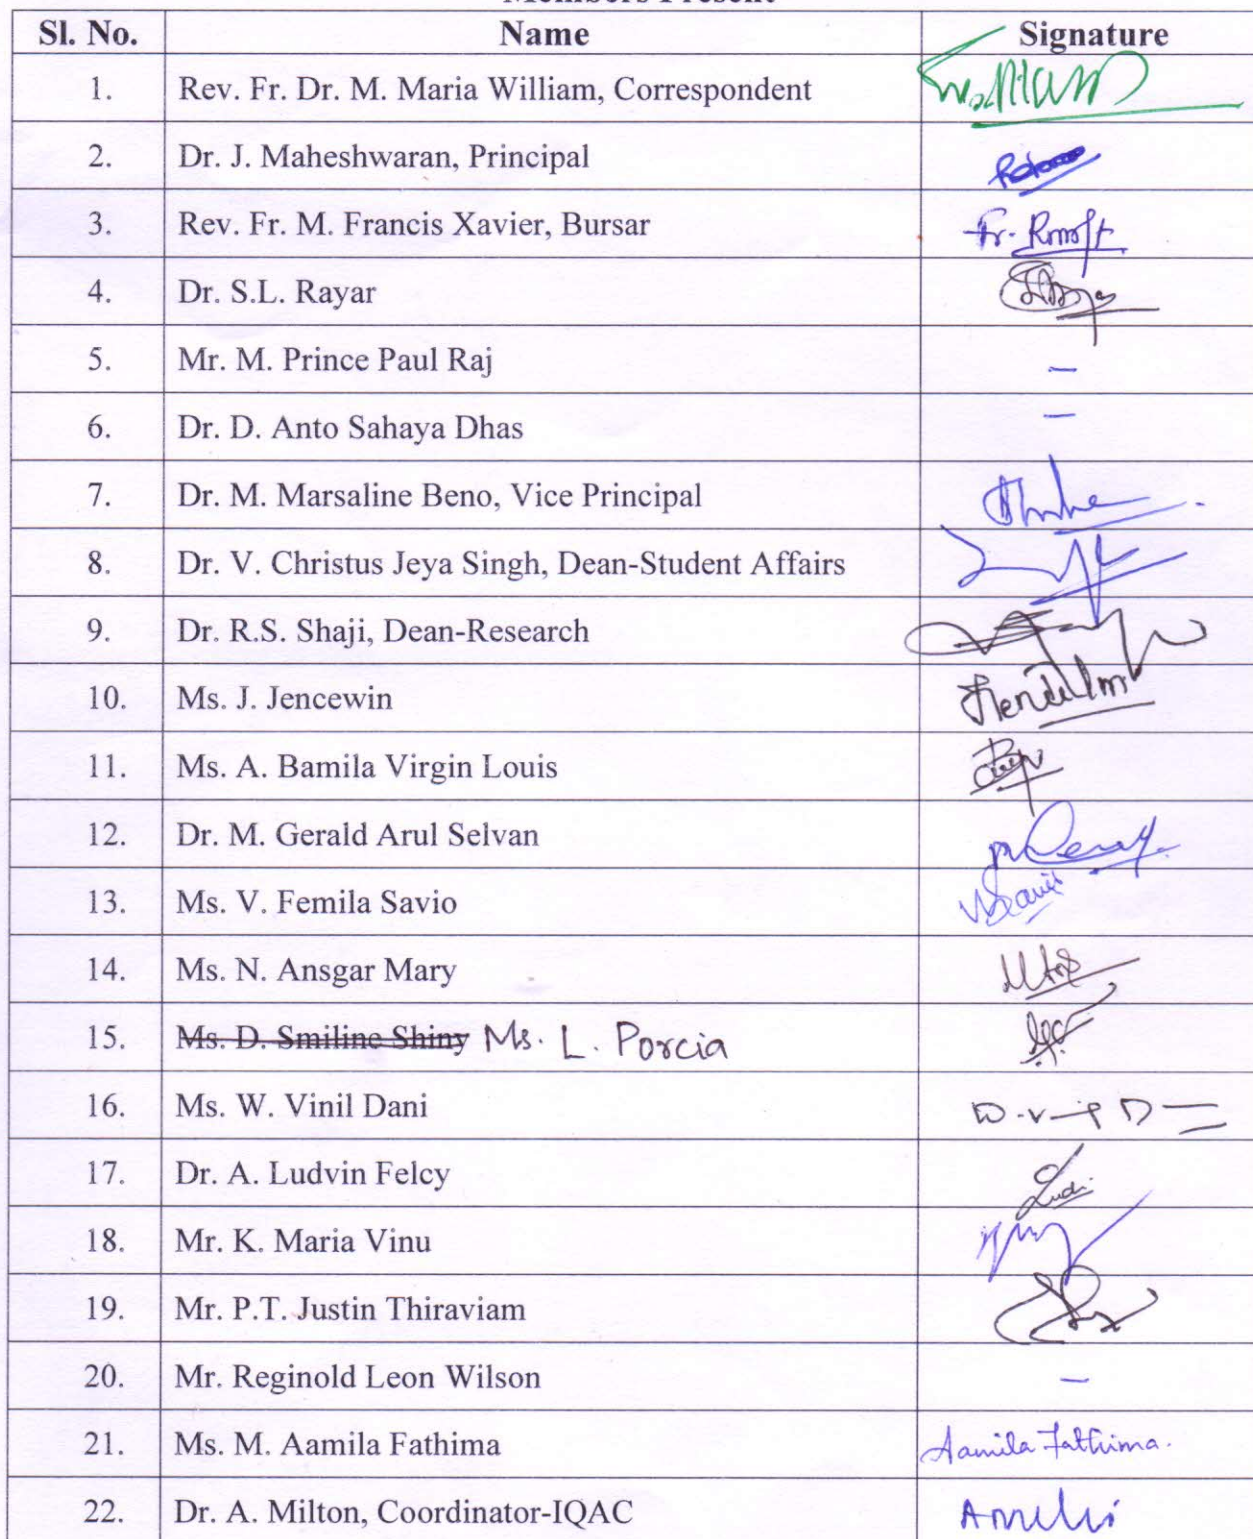 Members Present
Sl. No. Name Signature
1. Rev. Fr. Dr. M. Maria William, Correspondent
2. Dr. J. Maheshwaran, Principal
3. Rev. Fr. M. Francis Xavier, Bursar Fr.
4. Dr. S.L. Rayar
5. Mr. M. Prince Paul Raj –
6. Dr. D. Anto Sahaya Dhas –
7. Dr. M. Marsaline Beno, Vice Principal
8. Dr. V. Christus Jeya Singh, Dean-Student Affairs
9. Dr. R.S. Shaji, Dean-Research
10. Ms. J. Jencewin
11. Ms. A. Bamila Virgin Louis
12. Dr. M. Gerald Arul Selvan
13. Ms. V. Femila Savio
14. Ms. N. Ansgar Mary
15. Ms. D. Smiline Shiny Ms. L. Porcia
16. Ms. W. Vinil Dani
17. Dr. A. Ludvin Felcy Ludi
18. Mr. K. Maria Vinu
19. Mr. P.T. Justin Thiraviam
20. Mr. Reginold Leon Wilson –
21. Ms. M. Aamila Fathima Aamila Fathima.
22. Dr. A. Milton, Coordinator-IQAC